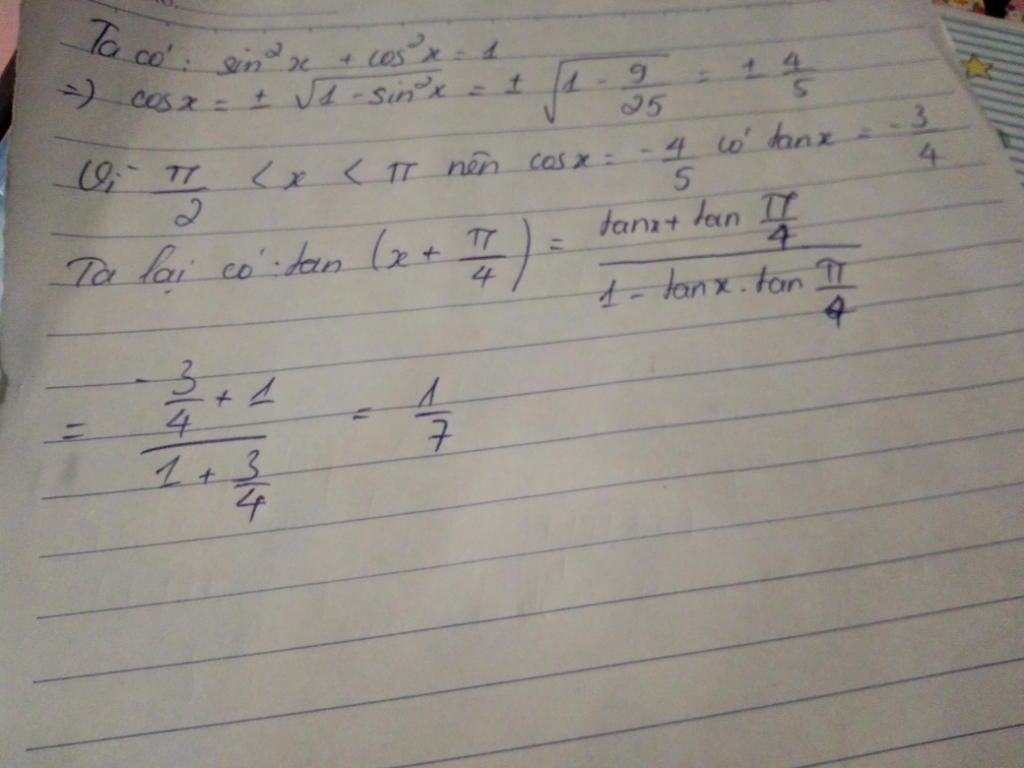 Ta có: sin²x + cos²x = 1
=> cosx = ± √(1 - sin²x) = ± √(1 - 9/25) = ± 4/5
Vì π/2 < x < π nên cosx = -4/5 có tanx = -3/4
Ta lại có: tan (x + π/4) = (tanx + tan π/4)/(1 - tanx . tan π/4)
= (-3/4 + 1)/(1 + 3/4) = 1/7